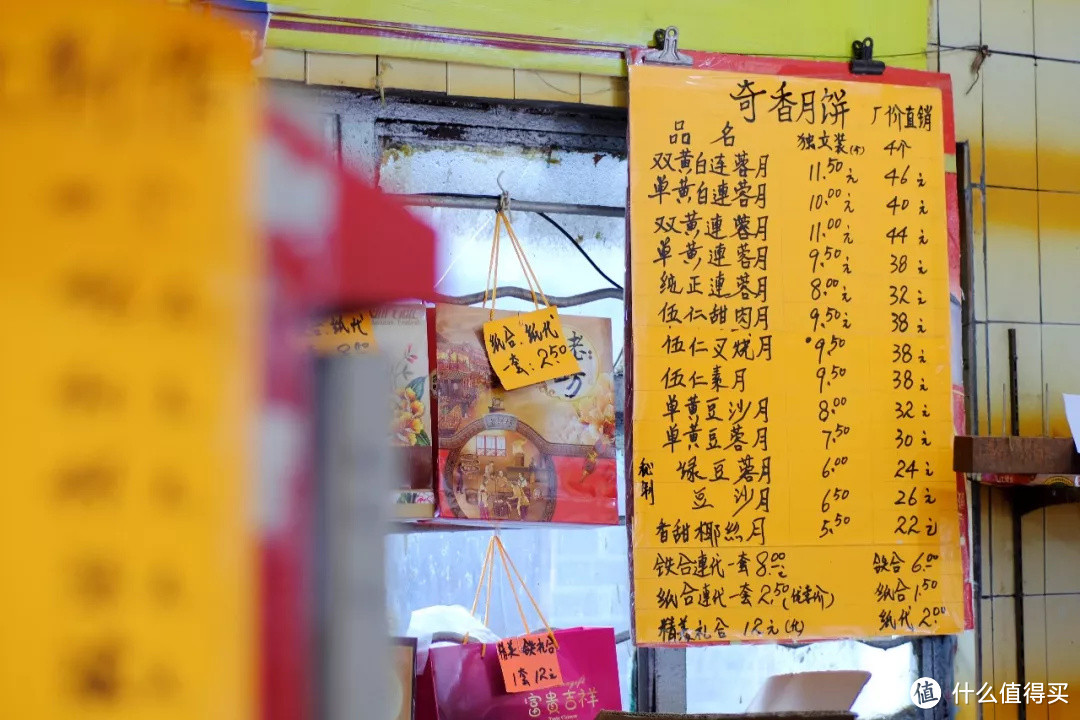 奇香月饼 厂价直销
品名 独文装(个) 4个
双黄白连蓉月 11.50元 46元
单黄白連蓉月 10.00元 40元
双黄連蓉月 11.00元 44元
单黄連蓉月 9.50元 38元
纯正連蓉月 8.00元 32元
伍仁甜肉月 9.50元 38元
伍仁叉烧月 9.50元 38元
伍仁素月 9.50 38元
单黄豆沙月 8.00 32元
单黄豆蓉月 7.50 30元
秘制 绿豆蓉月 6.00 24元
豆沙月 6.50 26元
香甜椰丝月 5.50 22元
铁合連代一套8.00元 铁合6.00
纸合連代一套2.50(优幸价) 纸合1.50
精美礼合 12元(代) 纸代2.00
纸合.纸代
一套:2.50
纸代
老
方
精美铁礼合
1套12元
富贵吉祥
值 什么值得买